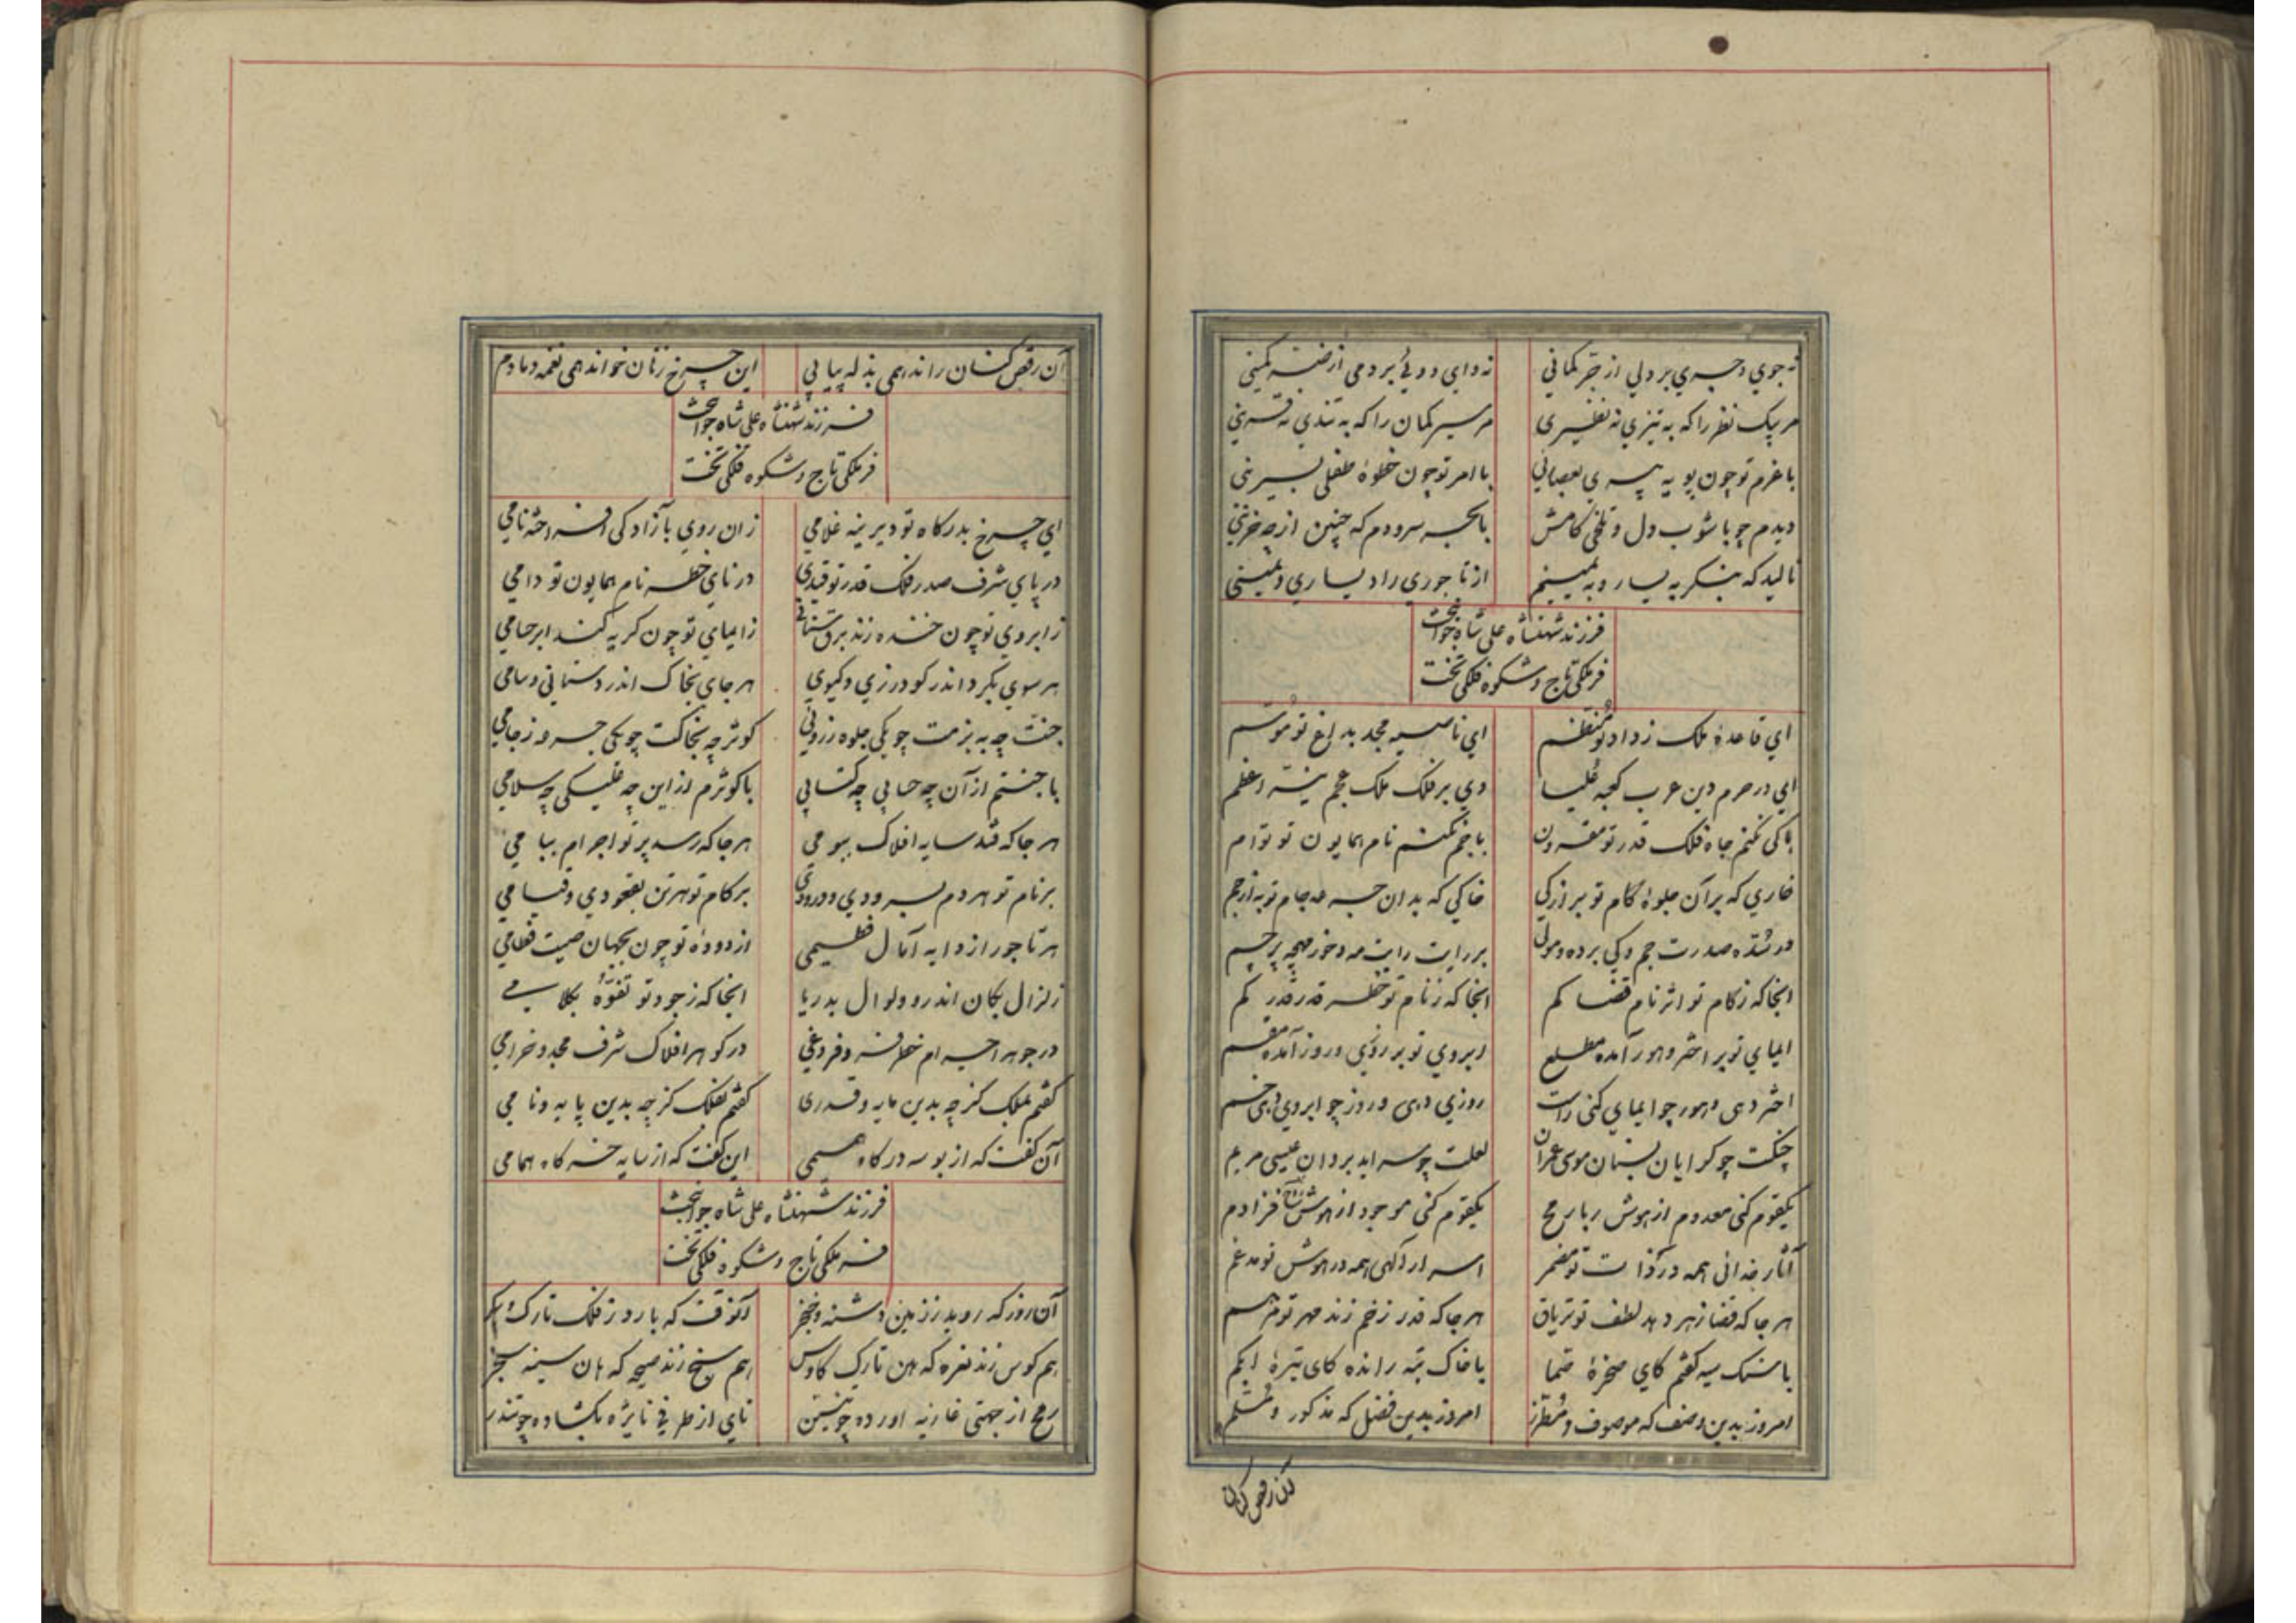 نه جوی و جسری بر دلی از چتر کمانی نه دابی دوئی بر دمی از ضبنه کمینی
مر پیک نظر را که به تیزی نه نظیری مر سیر کمان را که به تندی نه قرینی
با عزم تو چون پویه پیری بعصایی با امر تو چون خطوهٔ طفلی بسرینی
دیدم چو باشوب دل و تلخی کامش با بحر سرودم که چنین از چه حزینی
نالید که بنگر به یسار و به یمینم از تاجوری راد یساری و یمینی
فرزند شهنشاه علی شاه جوانبخت
فر ملکی تاج و شکوه فلکی تخت
ای قاعدهٔ ملک ز داد تو منظم ای ناصیه مجد بداغ تو موسم
ای در حرم دین عرب کعبه علیا وی بر فلک ملک عجم نیر اعظم
با کی نکنم جاه فلک قدر تو مقرون با جم نکنم نام همایون تو توام
خاری که بر آن جلوهٔ کام تو بر از کی خاکی که بدان جرعه جام تو به از جم
در سدّه صدرت جم و کی برده و مولی بر رایت رایت مه و خور مهچه پرچم
آنجا که ز کام تو اثر نام قضا کم آنجا که ز نام تو خطر قدر قدر کم
ایمای تو بر اختر و هور آمده مطلع ابروی تو بر روزی و روز آمده مقسم
اختر دهی و هور چو ایمای کنی راست روزی دهی و روز چو ابروی دهی خم
چنگت چو گراید بسنان موسی عمران لعلت چو سراید بروان عیسی مریم
یکقوم کنی معدوم از هوش ربا رمح یکقوم کنی موجود از هوش فزا دم
آثار خدائی همه در ذات تو مضمر اسرار آلهی همه در هوش تو مدغم
هر جا که قضا زهر دهد لطف تو تریاق هر جا که قدر زخم زند مهر تو مرهم
با سنگ سیه گفتم کای صخرهٔ صما با خاک تبه رانده کای تیرهٔ ابکم
امروز بدین وصف که موصوف و مطرز امروز بدین فضل که مذکور و مسلم
آن رقص کنان
آن رقص کنان راند همی بذله پیاپی این چرخ زنان خواند همی نغمه دمادم
فرزند شهنشاه علی شاه جوانبخت
فر ملکی تاج و شکوه فلکی تخت
ای چرخ بدرگاه تو دیرینه غلامی زان روی بآزادگی افراخته نامی
در پای شرف صدر فلک قدر تو قیدی در نای خطر نام همایون تو دامی
ز ابروی تو چون خنده زند برق سنانی ز ایمای تو چون گریه کند ابر حسامی
هر سوی بگرد اندر گودرزی و گیوی هر جای بخاک اندر دستانی و سامی
جنت چه به بزمت چو یکی جلوه ز رویی کوثر چه بخاکت چو یکی جرعه ز جامی
با جنتم از آن چه حیایی چه گشایی با کوثرم از این چه علیکی چه سلامی
هر جا که فتد سایه افلاک ببومی هر جا که رسد پرتو اجرام ببامی
بر نام تو هر دم بسرودی و درودی بر کام تو هر تن بقعودی و قیامی
هر تاجور از دایه آمال فطیمی از دودهٔ تو چون بجهان صیت فطامی
زلزال بکان اندر و ولوال بدریا آنجا که ز جود تو تفوّهٔ بکلامی
در جوهر اجسام خطر فر و فروغی در گوهر افلاک شرف مجد و خرامی
گفتم بملک کز چه بدین مایه و قدری گفتم بفلک کز چه بدین پایه و نامی
آن گفت که از بوسه درگاه همی این گفت که از سایه خرگاه همامی
فرزند شهنشاه علی شاه جوانبخت
فر ملکی تاج و شکوه فلکی تخت
آن روز که روید ز زمین دشنه و خنجر آنوقت که بارد ز فلک تارک و
هم کوس زند نعره که هن تارک کاوس هم سنج زند صیحه که هان سینه سنجر
رمح از جهتی غازیه آورده چو تنین نای از طرفی نایژه بگشاده چو تندر